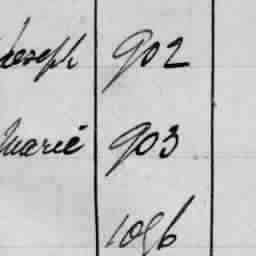 Joseph 902
Marie 903
1096